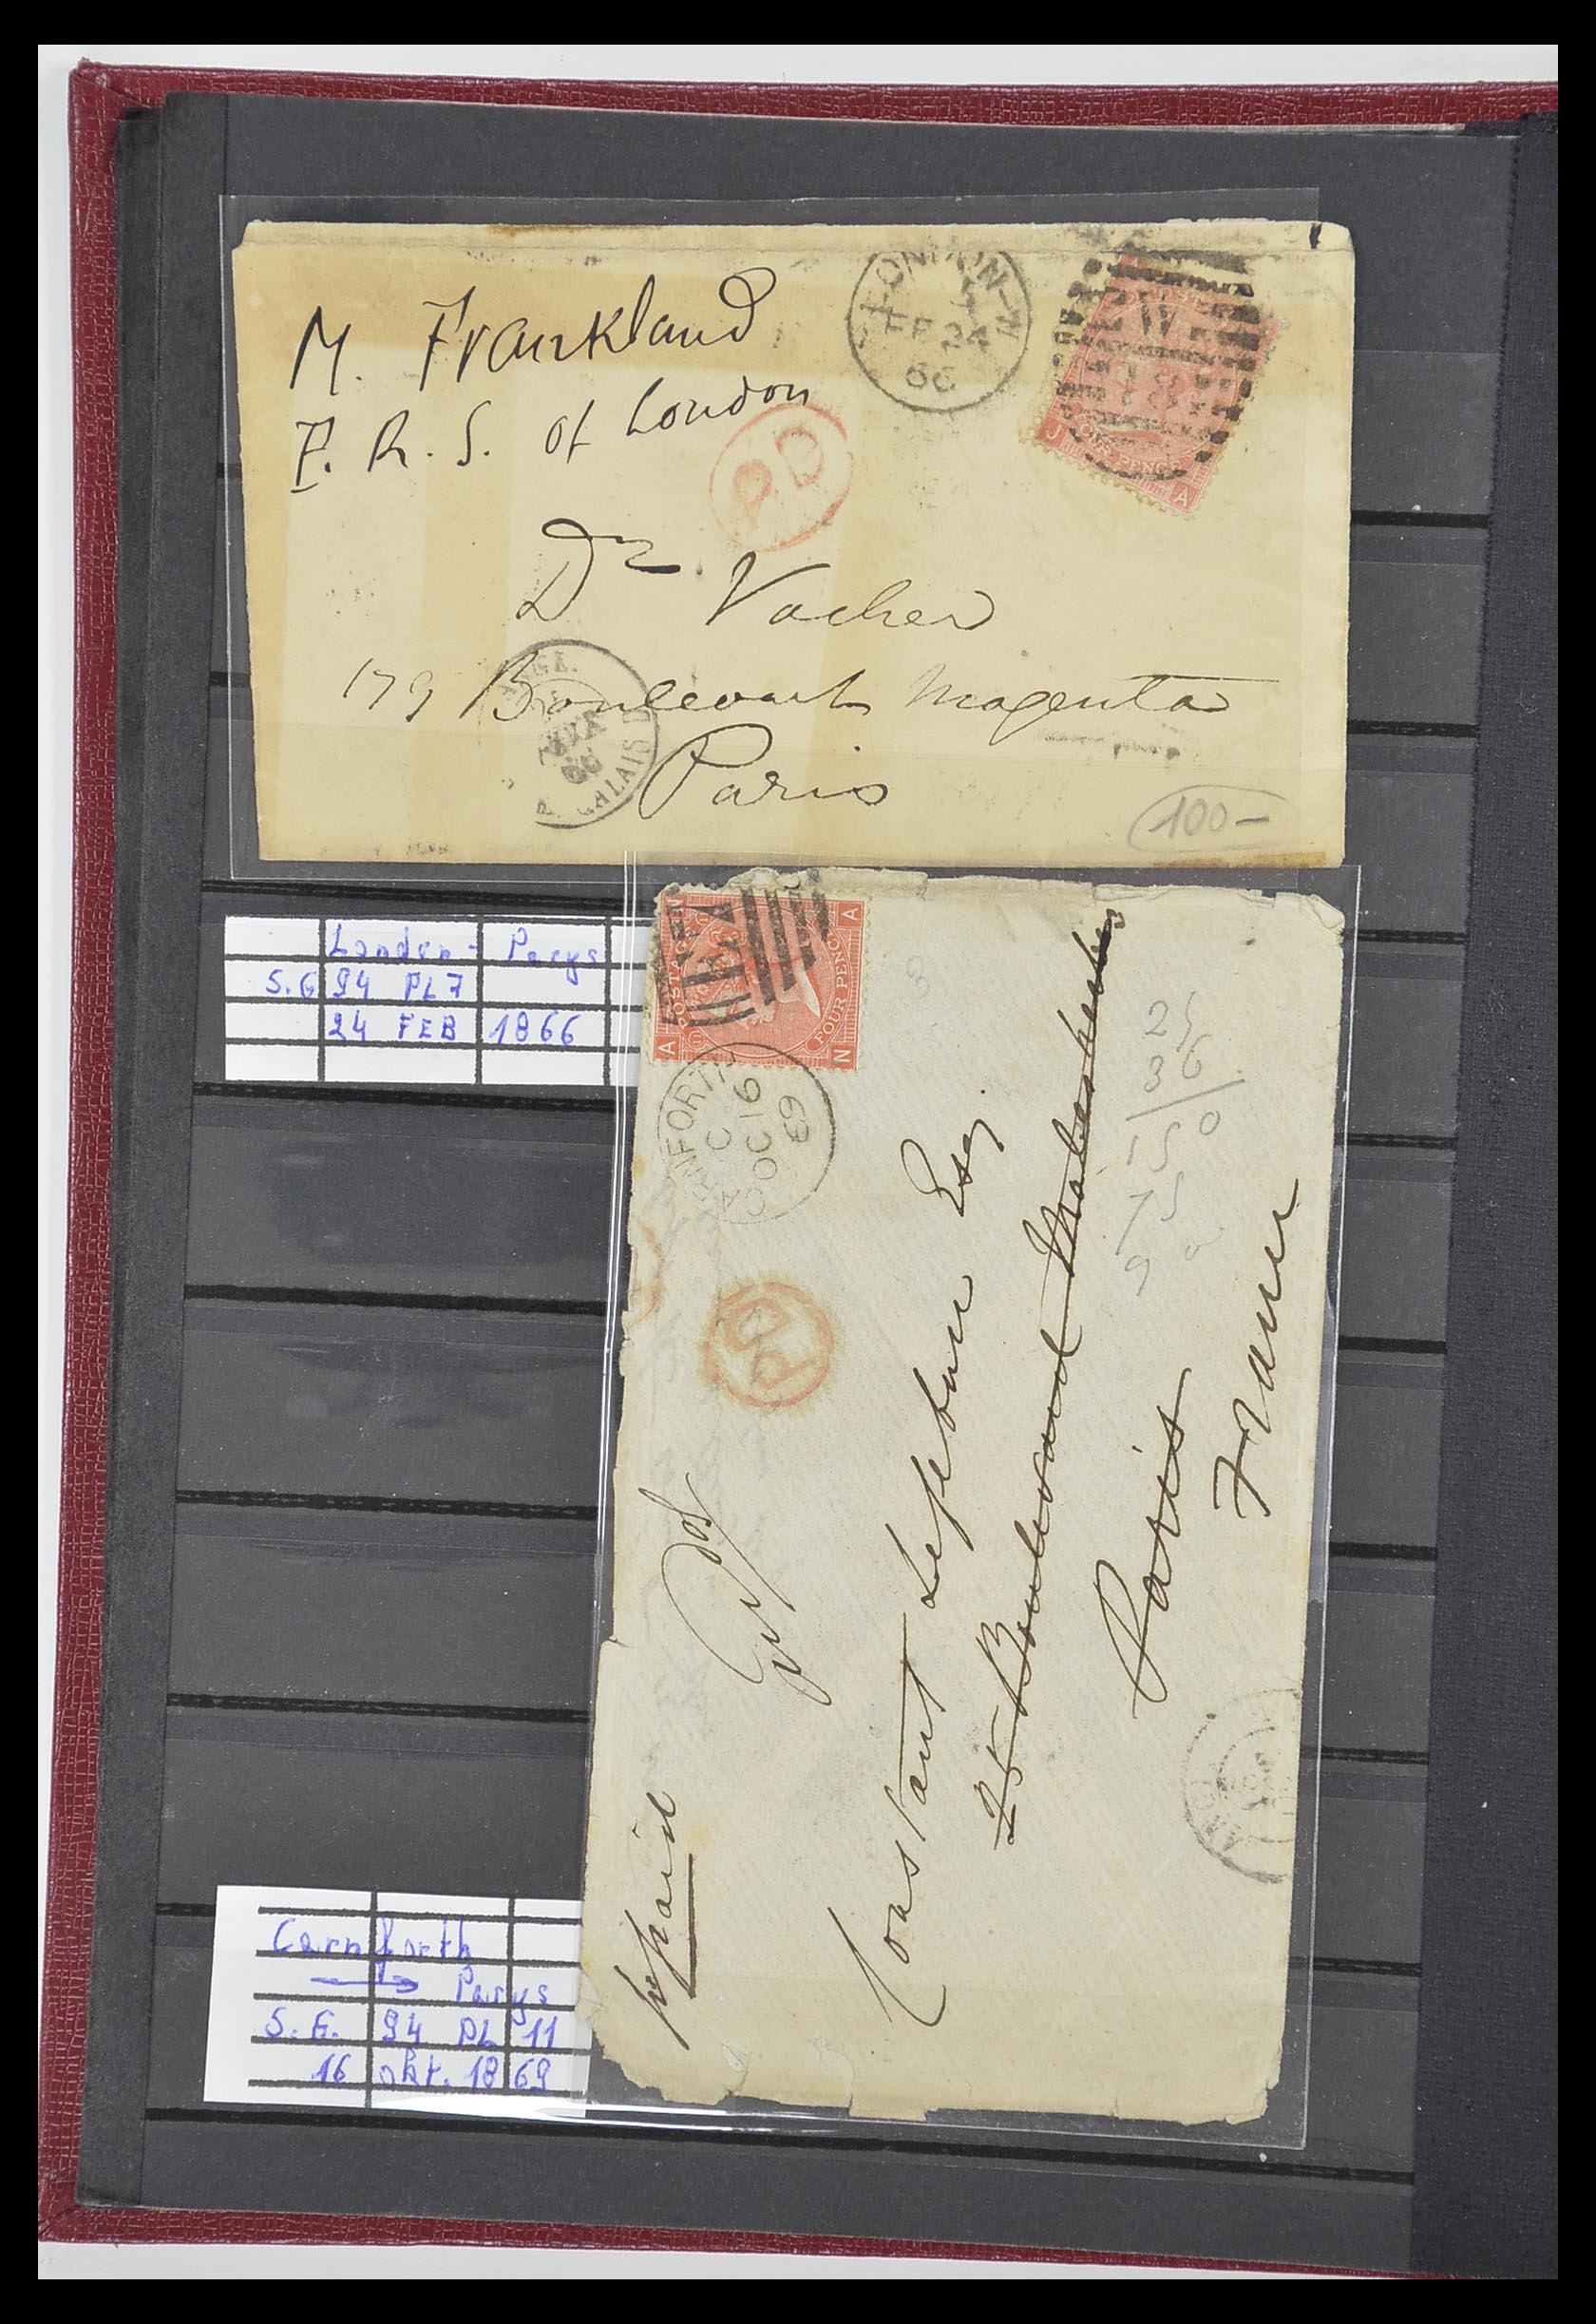 M. Frankland
F. R. S. of London
LONDON
FE 24
66
W
PD
J
A
Dr Vacher
179 Boulevart Magenta
Paris
CALAIS
66
100-
London - Parys
S.G 94 PL7
24 FEB 1866
POSTAGE
FOUR PENCE
A
N
A
N
CARNFORTH
C
OC 16
69
PD
prepaid
Constant Lefebure Esq.
25 Boulevard Malesherbes
Paris
France
25
36
150
75
Carnforth
→ Parys
S.G. 94 PL 11
16 okt. 1869